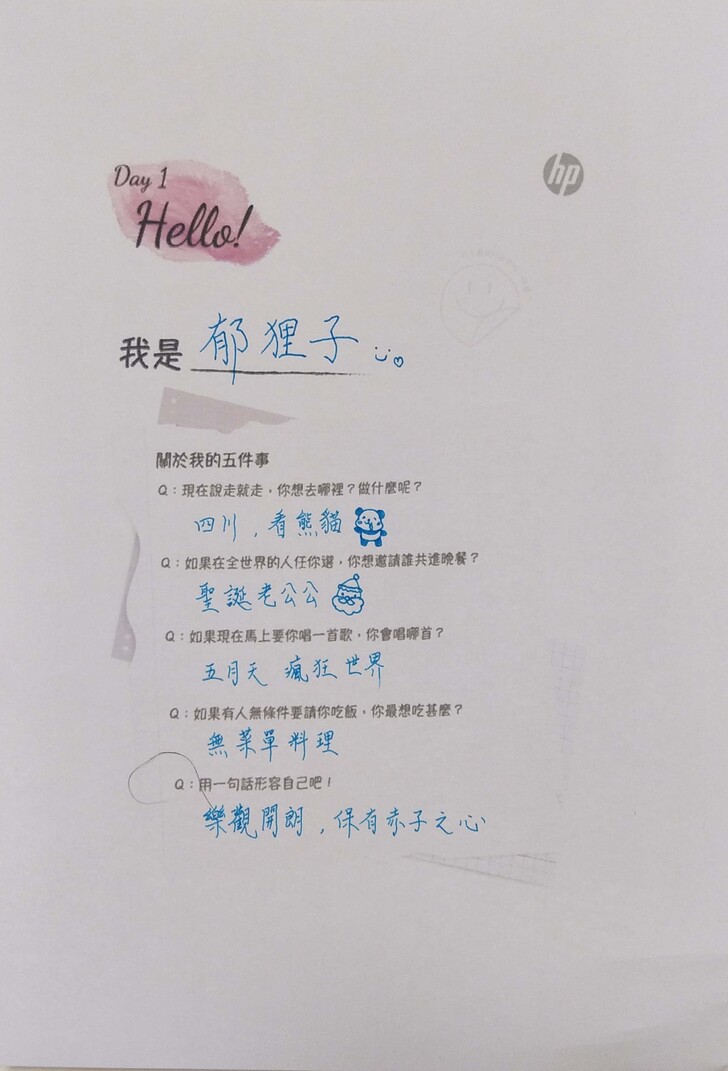 Day 1
Hello!
hp
我是 郁狸子
關於我的五件事
Q：現在說走就走，你想去哪裡？做什麼呢？
四川，看熊貓
Q：如果在全世界的人任你選，你想邀請誰共進晚餐？
聖誕老公公
Q：如果現在馬上要你唱一首歌，你會唱哪首？
五月天 瘋狂世界
Q：如果有人無條件要請你吃飯，你最想吃甚麼？
無菜單料理
Q：用一句話形容自己吧！
樂觀開朗，保有赤子之心